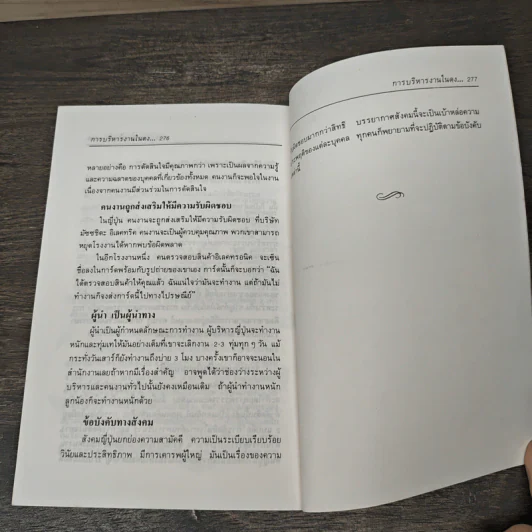 การบริหารงานในดง... 276
หลายอย่างคือ การตัดสินใจมีคุณภาพกว่า เพราะเป็นผลจากความรู้
และความฉลาดของบุคคลที่เกี่ยวข้องทั้งหมด คนงานก็จะพอใจในงาน
เนื่องจากคนงานมีส่วนร่วมในการตัดสินใจ
คนงานถูกส่งเสริมให้มีความรับผิดชอบ
ในญี่ปุ่น คนงานจะถูกส่งเสริมให้มีความรับผิดชอบ ที่บริษัท
มัซซชิตะ อีเลคทริค คนงานจะเป็นผู้ควบคุมคุณภาพ พวกเขาสามารถ
หยุดโรงงานได้หากพบข้อผิดพลาด
ในอีกโรงงานหนึ่ง คนตรวจสอบสินค้าอิเลคทรอนิค จะเซ็น
ชื่อลงในการ์ดพร้อมกับรูปถ่ายของเขาเอง การ์ดนั้นก็จะบอกว่า "ฉัน
ได้ตรวจสอบสินค้าให้คุณแล้ว ฉันแน่ใจว่ามันจะทำงาน แต่ถ้ามันไม่
ทำงานก็จงส่งการ์ดนี้ไปทางไปรษณีย์"
ผู้นำ เป็นผู้นำทาง
ผู้นำเป็นผู้กำหนดลักษณะการทำงาน ผู้บริหารญี่ปุ่นจะทำงาน
หนักและทุ่มเทให้มันอย่างเต็มที่เขาจะเลิกงาน 2-3 ทุ่มทุก ๆ วัน แม้
กระทั่งวันเสาร์ก็ยังทำงานถึงบ่าย 3 โมง บางครั้งเขาก็อาจจะนอนใน
สำนักงานเลยถ้าหากมีเรื่องสำคัญ อาจพูดได้ว่าช่องว่างระหว่างผู้
บริหารและคนงานทั่วไปนั้นยังคงเหมือนเดิม ถ้าผู้นำทำงานหนัก
ลูกน้องก็จะทำงานหนักด้วย
ข้อบังคับทางสังคม
สังคมญี่ปุ่นยกย่องความสามัคคี ความเป็นระเบียบเรียบร้อย
วินัยและประสิทธิภาพ มีการเคารพผู้ใหญ่ มันเป็นเรื่องของความ
การบริหารงานในดง... 277
ชอบมากกว่าสิทธิ บรรยากาศสังคมนี้จะเป็นเบ้าหล่อความ
ของแต่ละบุคคล ทุกคนก็พยายามที่จะปฏิบัติตามข้อบังคับ